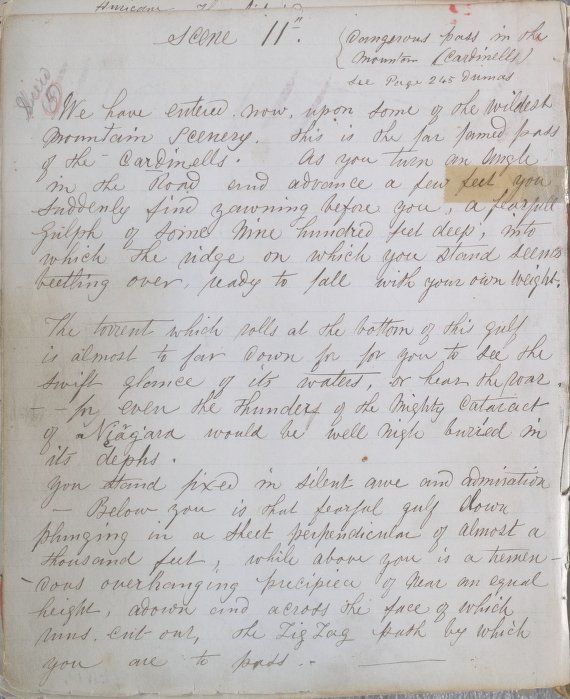 Scene 11"
Dangerous pass in the
Mountain (Cardinells)
See Page 245 Dumas
We have entered now, upon some of the wildest
Mountain Scenery. This is the far famed pass
of the Cardinells. As you turn an Angle
in the Road and advance a few feet you
suddenly find yawning before you, a fearful
Gulph of some Nine hundred feet deep, into
which the ridge on which you stand seems
beetling over, ready to fall with your own weight.
The torrent which rolls at the bottom of this gulf
is almost to far down for for you to see the
swift glance of its waters, or hear the roar.
- - for even the thunders of the Mighty Cataract
of Niagara would be well nigh buried in
its dephs.
You stand fixed in silent awe and admiration
- Below you is that fearful gulf down
plunging in a sheet perpendicular of almost a
thousand feet, while above you is a tremen-
dous overhanging precipice of near an equal
height, adown and across the face of which
runs, cut out, the Zig Zag path by which
you are to pass. -